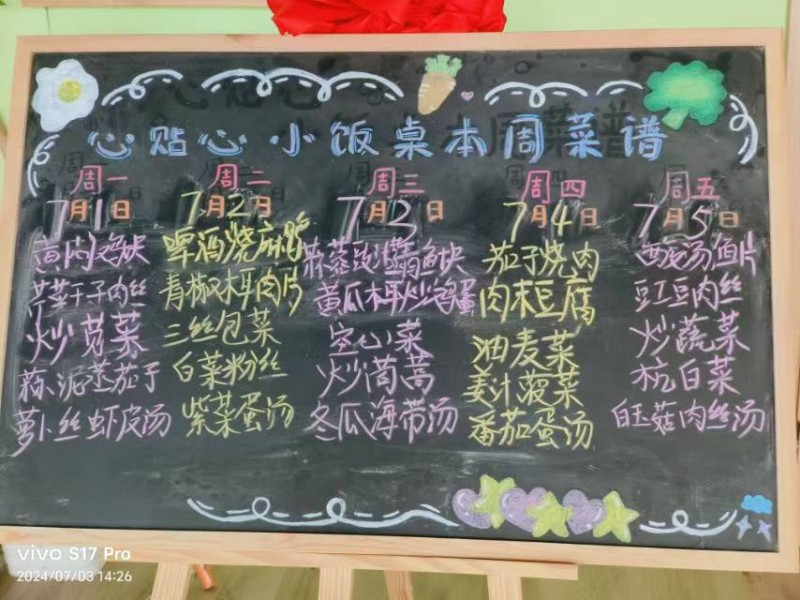 心贴心小饭桌本周菜谱
周一
7月1日
黄焖鸡块
芹菜干子肉丝
炒苋菜
蒜泥蒸茄子
萝卜丝虾皮汤
周二
7月2日
啤酒烧麻鸭
青椒木耳肉片
三丝包菜
白菜粉丝
紫菜蛋汤
周三
7月3日
鱼块
黄瓜木耳炒鸡蛋
空心菜
炒茼蒿
冬瓜海带汤
周四
7月4日
茄子烧肉
肉末豆腐
油麦菜
姜汁菠菜
番茄蛋汤
周五
7月5日
汤鱼片
豇豆肉丝
炒蔬菜
杭白菜
白玉菇肉丝汤
vivo S17 Pro
2024/07/03 14:26